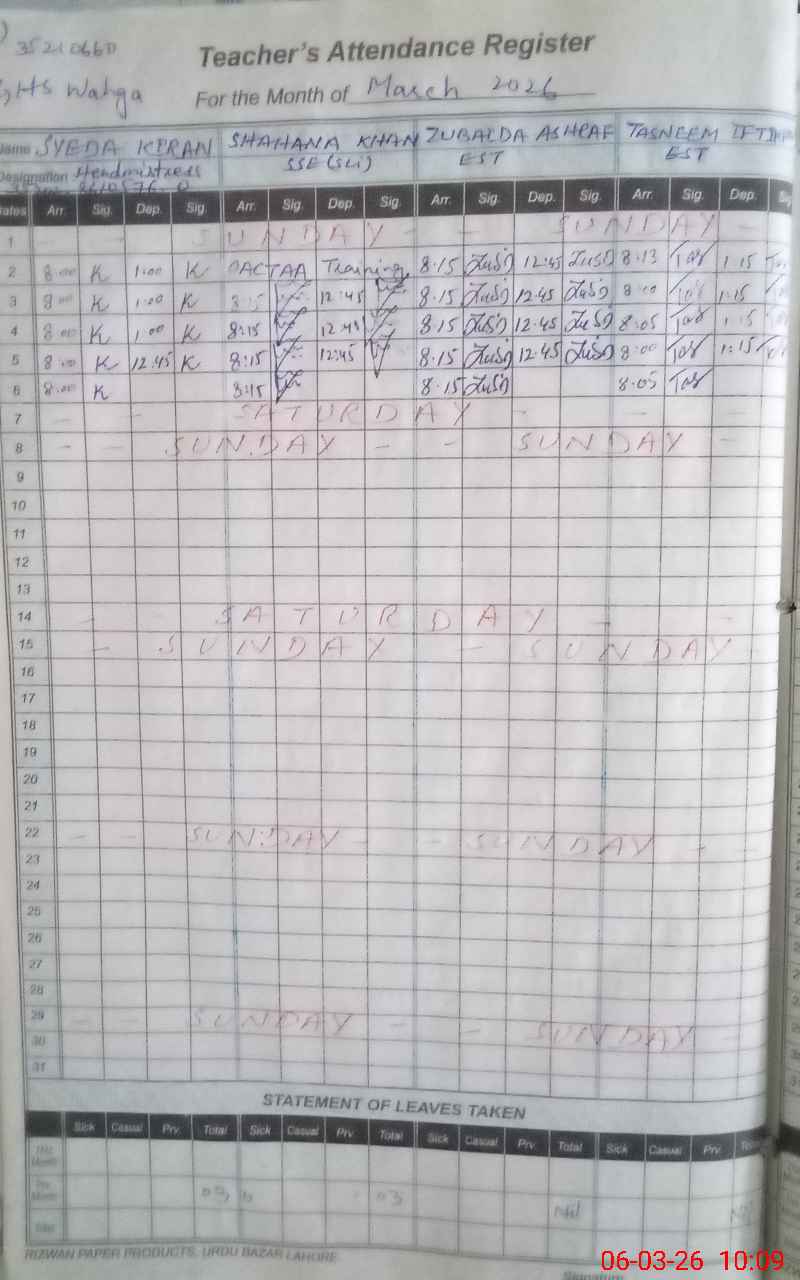 35210660
Teacher's Attendance Register
GHS Wahga
For the Month of March 2026
Name SYEDA KIRAN SHAHANA KHAN ZUBAIDA ASHRAF TASNEEM IFTIKHAR
Designation Headmistress SSE (Sci) EST EST
Dates Arr. Sig. Dep. Sig. Arr. Sig. Dep. Sig. Arr. Sig. Dep. Sig. Arr. Sig. Dep. Sig.
1 - - SUNDAY - - SUNDAY -
2 8:00 K 1:00 K PACTAA Training 8.15 12:45 8.13 Tas 1.15
3 8:00 K 1:00 K 8:15 12:45 8.15 12.45 8:00 Tas 1.15
4 8:00 K 1:00 K 8:15 12:45 8.15 12.45 8.05 Tas 1.15
5 8:00 K 12:45 K 8:15 12:45 8.15 12.45 8:00 Tas 1.15
6 8:00 K 8:15 8.15 8.05 Tas
7 - - SATURDAY - - -
8 - - SUNDAY - - SUNDAY -
9
10
11
12
13
14 - - SATURDAY - -
15 - SUNDAY - SUNDAY -
16
17
18
19
20
21
22 - - SUNDAY - - SUNDAY - -
23
24
25
26
27
28
29 - - SUNDAY - - SUNDAY -
30
31
STATEMENT OF LEAVES TAKEN
Sick Casual Prv. Total Sick Casual Prv. Total Sick Casual Prv. Total Sick Casual Prv. Total
Month
Pre. Month 03 Nil
Total
RIZWAN PAPER PRODUCTS, URDU BAZAR LAHORE.
Signature
06-03-26 10:09